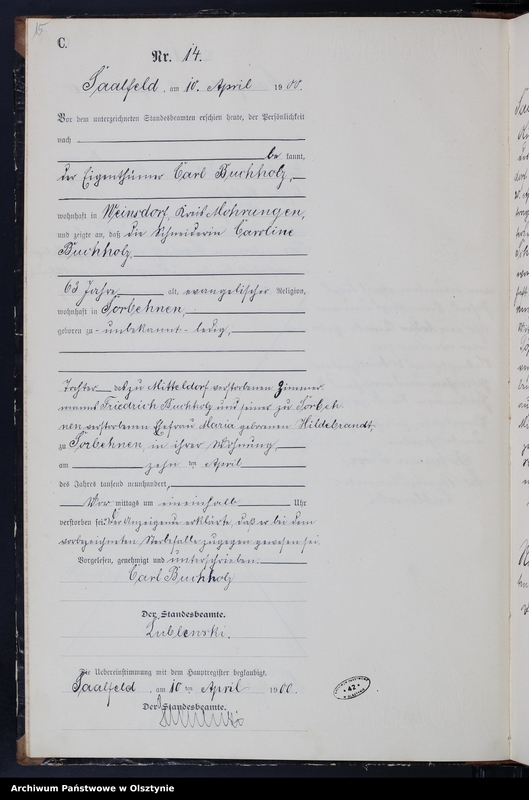 15
C.
Nr. 14.
Saalfeld, am 10. April 1900.
Vor dem unterzeichneten Standesbeamten erschien heute, der Persönlichkeit
nach
be kannt,
der Eigenthümer Carl Buchholz,
wohnhaft in Weinsdorf, Kreis Mohrungen,
und zeigte an, daß die Schneiderin Caroline
Buchholz,
63 Jahre alt, evangelischer Religion,
wohnhaft in Sorbehnen,
geboren zu - unbekannt - ledig,
Tochter des zu Mitteldorf verstorbenen Zimmer
manns Friedrich Buchholz und seiner zu Sorbeh
nen verstorbenen Ehefrau Maria geborenen Hildebrandt,
zu Sorbehnen, in ihrer Wohnung,
am zehn ten April
des Jahres tausend neunhundert,
Vor mittags um eineinhalb Uhr
verstorben sei. Der Anzeigende erklärte, daß er bei dem
vorbezeichneten Sterbefalle zugegen gewesen sei.
Vorgelesen, genehmigt und unterschrieben.
Carl Buchholz
Der Standesbeamte.
Die Uebereinstimmung mit dem Hauptregister beglaubigt.
Saalfeld, am 10 ten April 1900.
Der Standesbeamte.
42
Archiwum Państwowe w Olsztynie